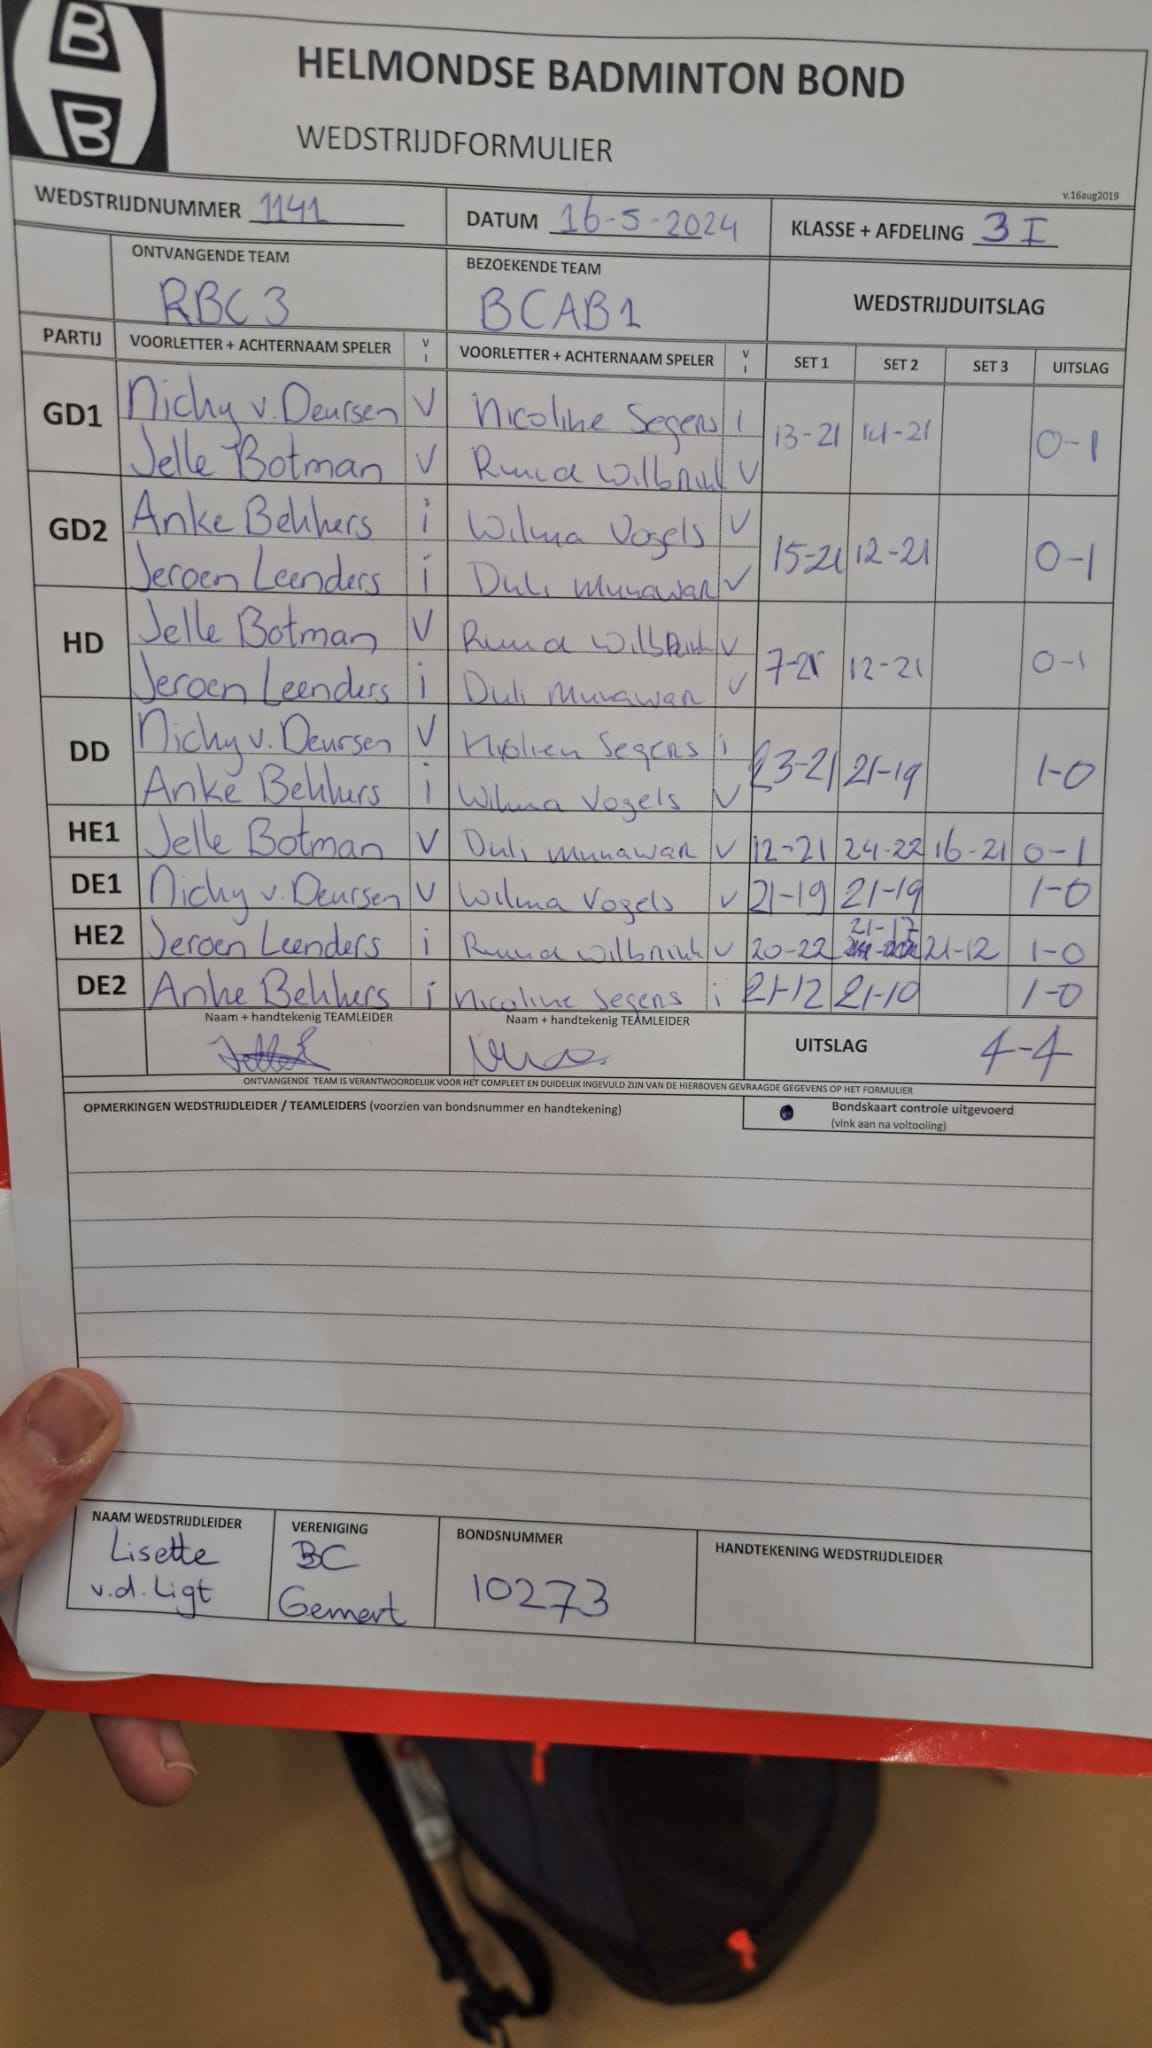 B
B
HELMONDSE BADMINTON BOND
WEDSTRIJDFORMULIER
v.16aug2019
WEDSTRIJDNUMMER 1141 DATUM 16-5-2024 KLASSE + AFDELING 3 I
ONTVANGENDE TEAM BEZOEKENDE TEAM
RBC 3 BCAB1 WEDSTRIJDUITSLAG
PARTIJ VOORLETTER + ACHTERNAAM SPELER V I VOORLETTER + ACHTERNAAM SPELER V I SET 1 SET 2 SET 3 UITSLAG
GD1 Nichy v. Deursen V Nicoline Segers i 13-21 14-21 0-1
Jelle Botman V Ruud Wilbrink V
GD2 Anke Bekkers i Wilma Vogels V 15-21 12-21 0-1
Jeroen Leenders i Duli Munawar V
HD Jelle Botman V Ruud Wilbrink V 7-21 12-21 0-1
Jeroen Leenders i Duli Munawar V
DD Nichy v. Deursen V Segers i 23-21 21-19 1-0
Anke Bekkers i Wilma Vogels V
HE1 Jelle Botman V Duli Munawar V 12-21 24-22 16-21 0-1
DE1 Nichy v. Deursen V Wilma Vogels V 21-19 21-19 1-0
HE2 Jeroen Leenders i Ruud Wilbrink V 20-22 21-17 21-12 1-0
DE2 Anke Bekkers i Nicoline Segers i 21-12 21-10 1-0
Naam + handtekenig TEAMLEIDER Naam + handtekenig TEAMLEIDER
UITSLAG 4-4
ONTVANGENDE TEAM IS VERANTWOORDELIJK VOOR HET COMPLEET EN DUIDELIJK INGEVULD ZIJN VAN DE HIERBOVEN GEVRAAGDE GEGEVENS OP HET FORMULIER
OPMERKINGEN WEDSTRIJDLEIDER / TEAMLEIDERS (voorzien van bondsnummer en handtekening) Bondskaart controle uitgevoerd
(vink aan na voltooling)
NAAM WEDSTRIJDLEIDER VERENIGING BONDSNUMMER HANDTEKENING WEDSTRIJDLEIDER
Lisette BC 10273
v.d. Ligt Gemert